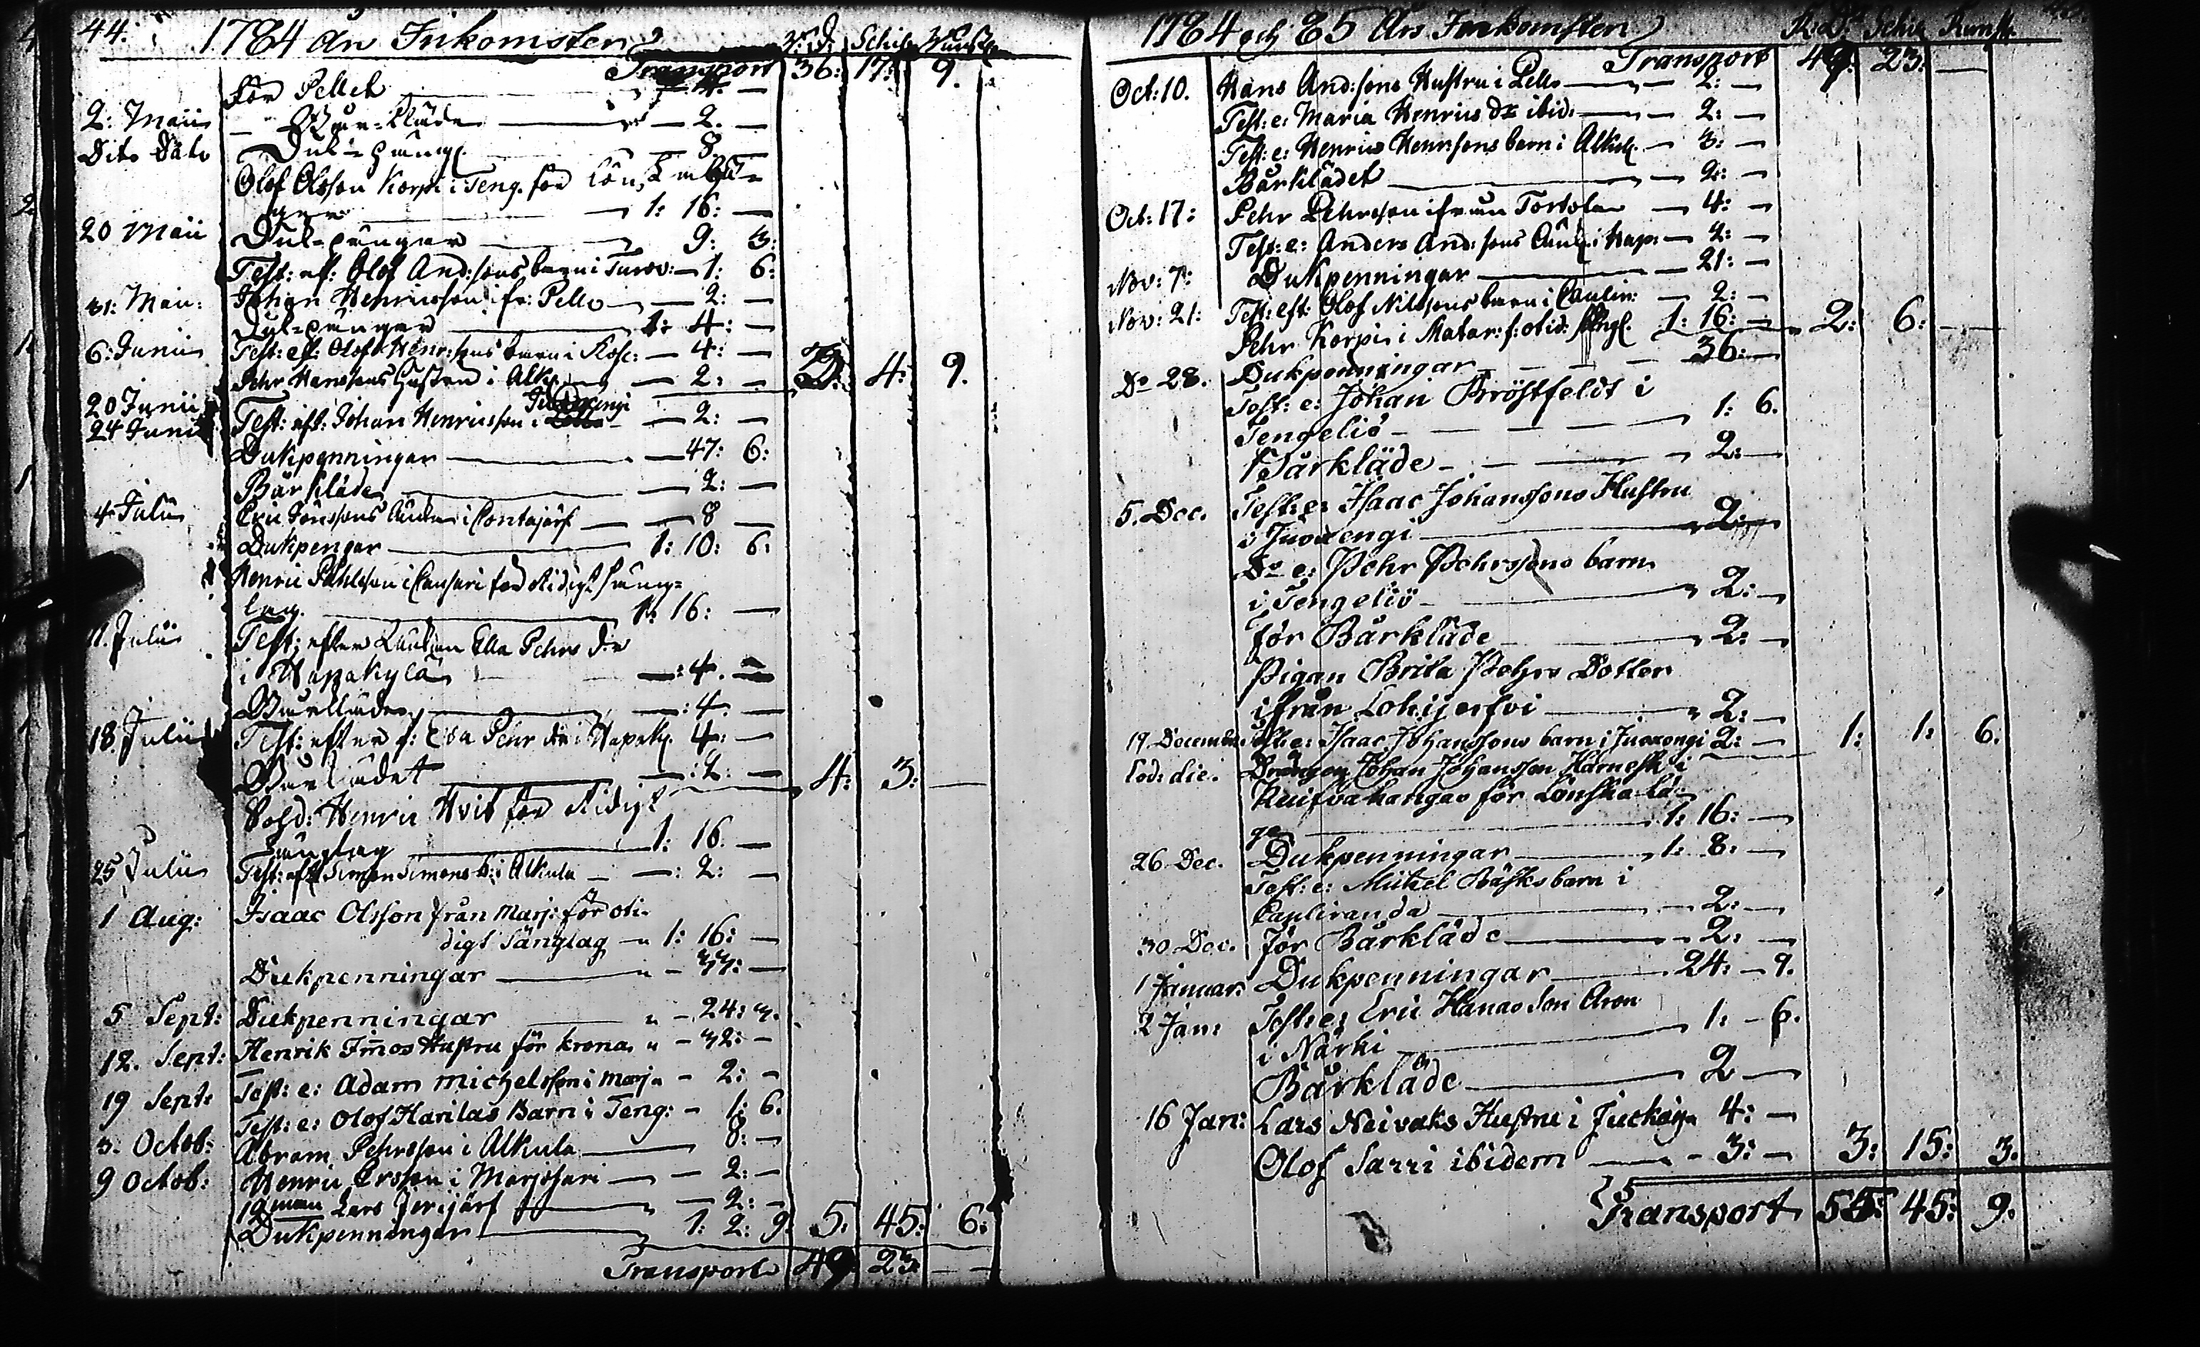 44. 1784 års Inkomster R:d. Schil. Runst.
Transport 36: 17: 9.
För Pellet
2: Maii Bår-kläde — 2. —
Dito Dato Duk-pung — 8 —
Olof Olsson Korpi i Teng. för
1: 16: —
20 Maii Duk-pungar — 9: 3:
Test: ef: Olof And:sons barn i Turov: — 1: 6:
31: Maii: Johan Henricsson ifr: Pello — 2: —
Duk-pungar — 1: 4: —
6: Junii Test: ef: Olof Henr:sons barn i — 4: —
Pehr Hanssons Hustru i Alk. — 2: — 2: 4: 9.
20 Junii Juoxengi
24 Junii Test: eft: Johan Henricsson i — 2: —
Dukpenningar — 47: 6:
Bårkläde — 2: —
4 Julii Eric Jönssons Änka i Pontajärf — 8
Dukpengar — 1: 10: 6:
Henric Påhlsson i för otidigt säng-
lag. — 1: 16: —
11. Julii Test: efter Ella Pehrs dr
i Hapakylä — : 4. —
Bårkläde — : 4. —
18. Julii Test: efter Pehr dr i Hapak. 4: —
Bårklädet — : 2: — 4: 3: —
Sold: Henric Hvit för otidigt
Sänglag — 1: 16. —
25 Julii Test: eft Simon Simons b: i Alkula — : 2: —
1 Aug: Isaac Olsson från Marj: för oti-
digt Sänglag — 1: 16: —
Dukpenningar — 33: —
5 Sept: Dukpenningar — 24: 3.
12. Sept: Henrik Im̅os Hustru för krona — 32: —
Test: e: Adam Michelsson i Marj. — 2: —
19 Sept: Test: e: Olof Harilas Barn i Teng: — 1: 6.
3. Octob: Abram Pehrsson i Alkula — 8: —
9 Octob: Henric Ersson i Marjosari — 2: —
Lars Jerijärf — 2: —
Dukpenningar — 1: 2: 9: 5: 45: 6:
Transport 49 23 — —
1784 och 85 Års Inkomster R:D: Schil. Runst.
Transport 49: 23: —
Oct: 10. Hans And:sons Hustru i Pello — 2: —
Test: e: Maria Henrics Dr ibid: — 2: —
Test: e: Henric Henrssons barn i Alkul. — 3: —
Bårklädet — 2: —
Oct: 17: Pehr Pehrsson ifrån Tortola — 4: —
Test: e: Anders And:sons i Hap: — 4: —
Nov: 7: Dukpenningar — 21: —
Nov: 21: Test: eft: Olof Nilssons barn i — 2: —
Pehr Korpi i Matar: f: otid: 1: 16: — 2: 6: —
36: —
Do 28. Dukpenningar
Test: e: Johan Bröstfeldt i
Tengeliö — 1: 6.
Bårkläde — 2: —
5. Dec. Test: e: Isaac Johanssons Hustru
i Juoxengi — 2: —
Do e: Pehr Pehrssons barn
i Tengeliö — 2: —
för Bårkläde — 2: —
Pigan Brita Pehrs Dotter
ifrån Lohijerfvi — 2: —
19. December Test: e: Isaac Johanssons barn i Juoxengi 2: — 1: 1: 6.
Eod: die. Drängen Johan Johansson Harnesk i
Ruifvakangas för Lönska lä-
ge — 1: 16: —
26. Dec. Dukpenningar — 1: 8: —
Test: e: Mickel Bäsks barn i
Caulivanda — 2: —
30. Dec. för Bårkläde — 2: —
1 Januar: Dukpenningar — 24: — 9.
2 Jan: Test: e: Eric Hanas Son Aron
i Närki — 1: — 6.
Bårkläde — 2 —
16 Jan: Lars Neivaks Hustru i Juckäjn 4: —
Olof Sarri ibidem — 3: — 3: 15: 3.
Transport 55: 45: 9.